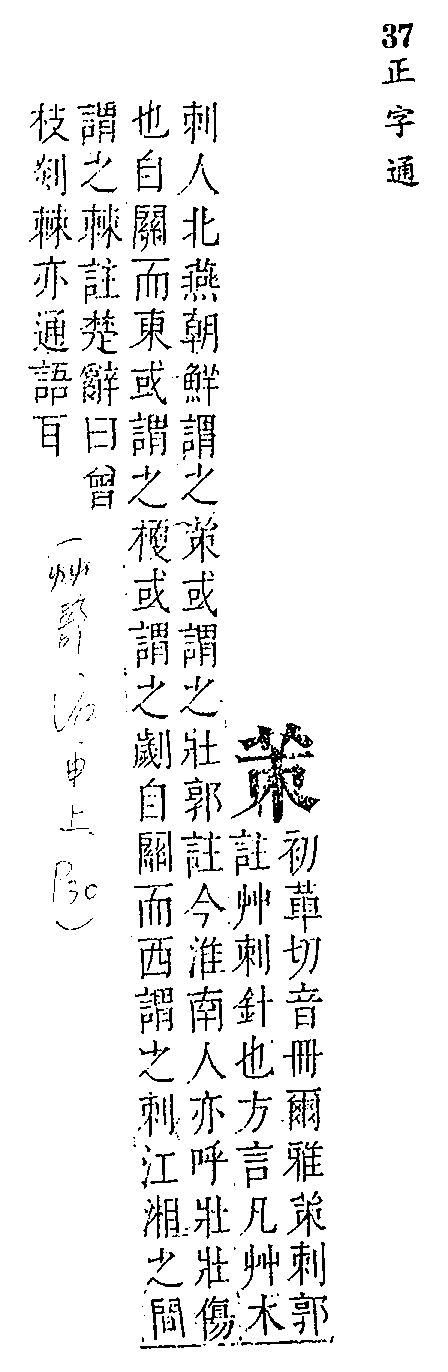 37
正字通
茦
初革切音冊爾雅茦刺郭
註艸刺針也方言凡艸木
刺人北燕朝鮮謂之茦或謂之壯郭註今淮南人亦呼壯壯傷
也自關而東或謂之梗或謂之劌自關而西謂之刺江湘之間
謂之棘註楚辭曰曾
枝剡棘亦通語耳
(艸部 申上 P30)